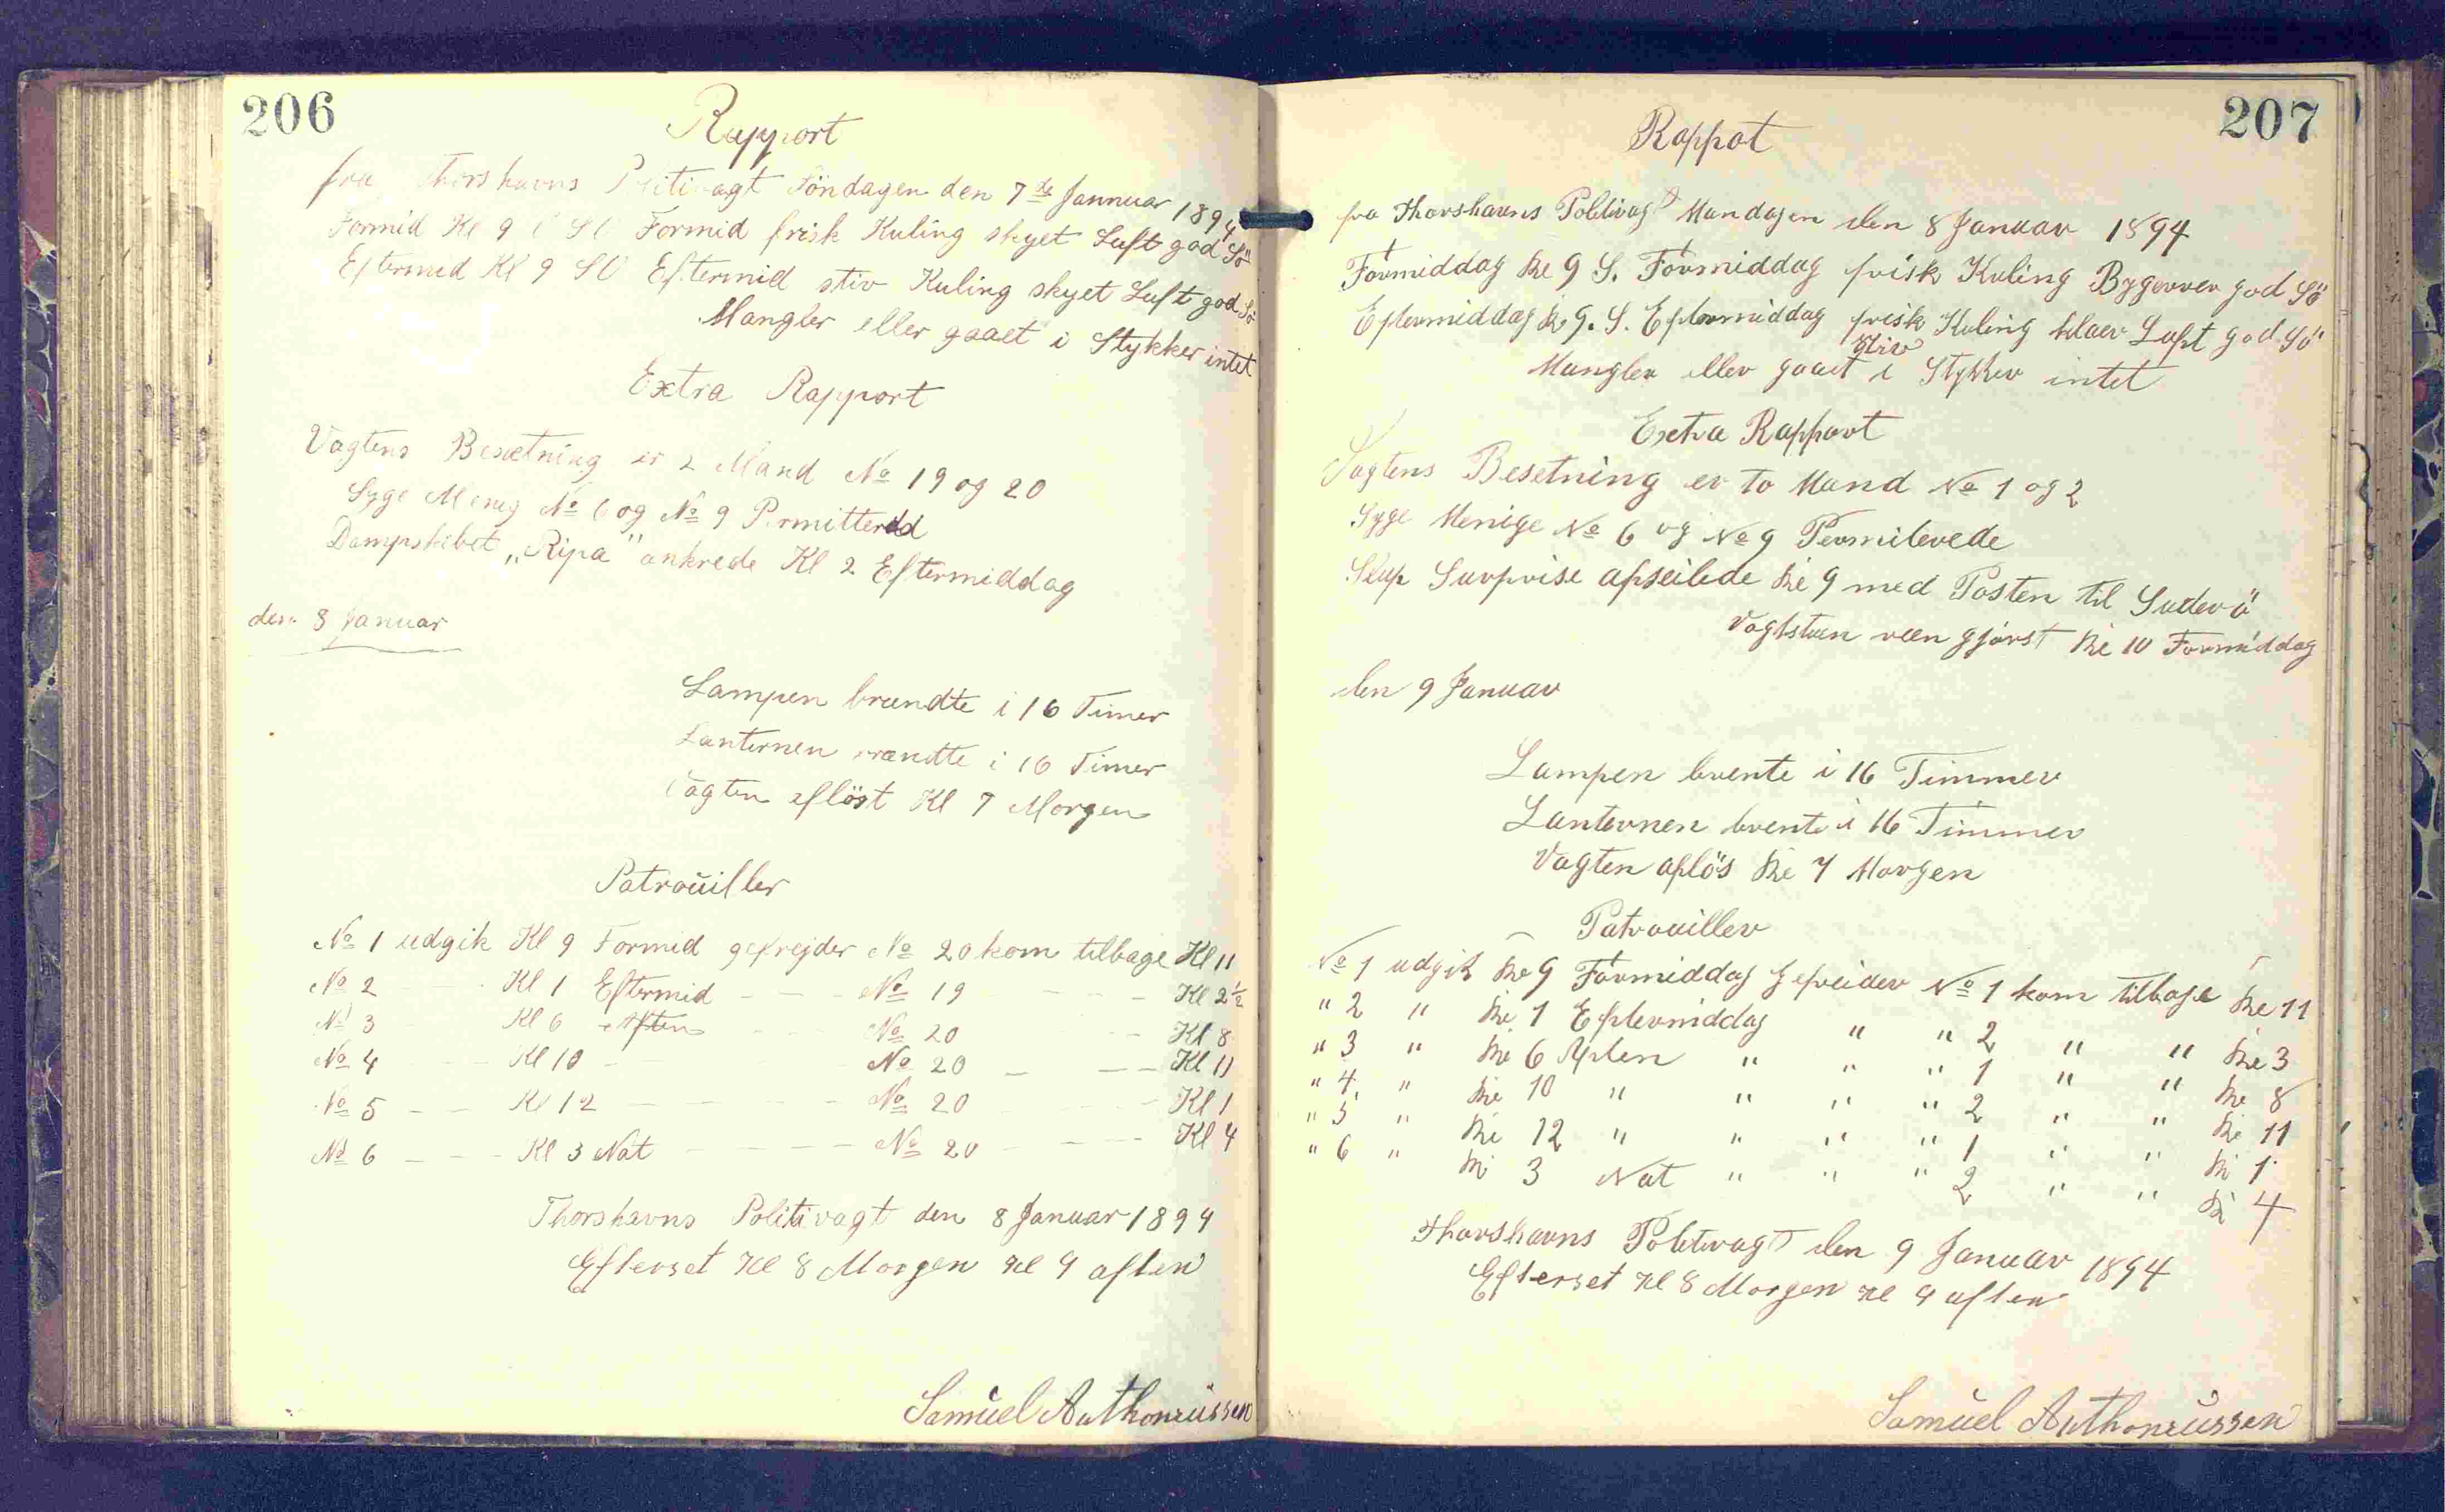 206
Rapport
fra Thorshavns Politivagt Söndagen den 7de Jannuar 1894
Formid Kl 9 Formid frisk Kuling skyet Luft god Sö
Eftermid Kl 9 SV Eftermid stiv Kuling skyet Luft god Sö
Mangler eller gaaet i Stykker intet
Extra Rapport
Vagtens Besætning er 2 Mand No 19 og 20
Syge Menig No 6 og No 9 Permitterdd
Dampskibet „Ripa" ankrede Kl 2 Eftermiddag
den 8 Januar
Lampen brændte i 16 Timer
Lanternen brændte i 16 Timer
Vagten aflöst Kl 7 Morgen
Patrouiller
No 1 udgik Kl 9 Formid gefrejder No 20 kom tilbage Kl 11
No 2 — — Kl 1 Eftermid — — No 19 — — Kl 2½
No 3 Kl 6 Aften — No 20 — Kl 8
No 4 — — Kl 10 — No 20 — — — Kl 11
No 5 — — Kl 12 — — — — No 20 — — Kl 1
No 6 — — — Kl 3 Nat — — — — No 20 — — — Kl 4
Thorshavns Politivagt den 8 Januar 1894
Efterset Kl 8 Morgen Kl 9 aften
Samuel Anthoniussen
207
Rappot
fra Thorshavns Politivagt Mandagen den 8 Januar 1894
Formiddag Kl 9 S. Formiddag frisk Kuling Bygerver god Sö
Eftermiddag Kl 9. S. Eftermiddag frisk Kuling klaer Luft god Sö
stiv
Mangler eller gaaet i Stykker intet
Extra Rapport
Vagtens Besetning er to Mand No 1 og 2
Syge Menige No 6 og No 9 Permiterede
Slup Surprise afseilede Kl 9 med Posten til Suderö
Vagtstuen reen gjörst Kl 10 Formiddag
den 9 Januar
Lampen brente i 16 Timmer
Lanternen brente i 16 Timmer
Vagten aflös Kl 7 Morgen
Patrouiller
No 1 udgik Kl 9 Formiddag Gefreider No 1 kom tilbage Kl 11
" 2 " Kl 1 Eftermiddag " " 2 " " Kl 3
" 3 " Kl 6 Aften " " " 1 " " Kl 8
" 4 " Kl 10 " " " " 2 " " Kl 11
" 5 " Kl 12 " " " " 1 " " Kl 1
" 6 " Kl 3 Nat " " " 2 " " Kl 4
Thorshavns Politivagt den 9 Januar 1894
Efterset Kl 8 Morgen Kl 9 aften
Samuel Anthoniussen